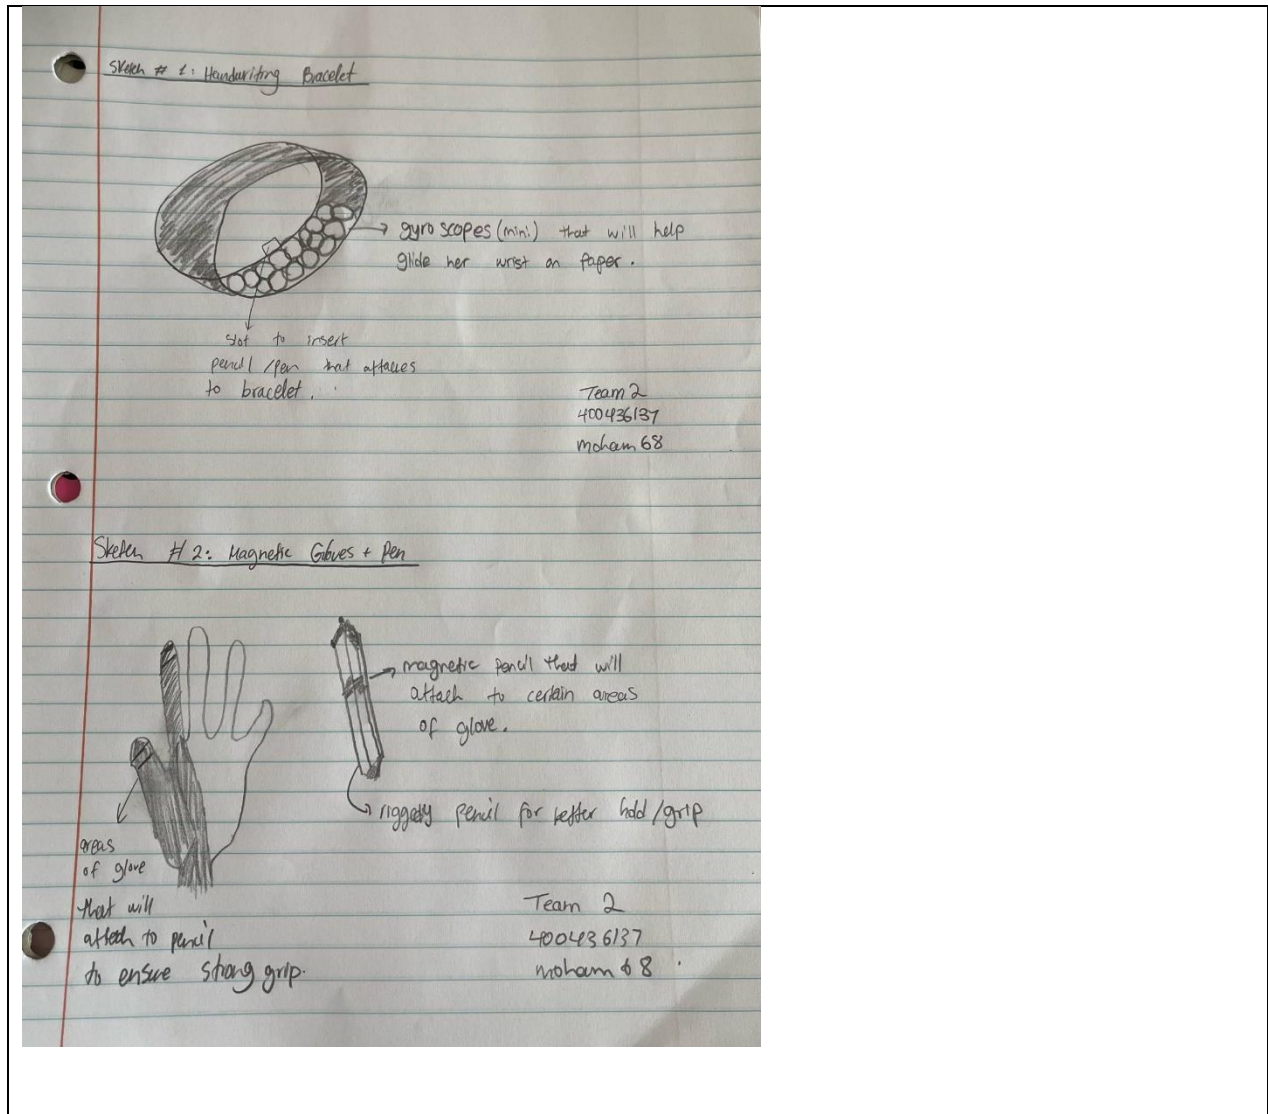 Sketch # 1: Handwriting Bracelet
gyroscopes (mini) that will help
glide her wrist on paper.
slot to insert
pencil/pen that attaches
to bracelet.
Team 2
400436137
moham68
Sketch # 2: Magnetic Gloves + Pen
magnetic pencil that will
attach to certain areas
of glove.
riggedy pencil for better hold/grip
areas
of glove
that will
attach to pencil
to ensure strong grip.
Team 2
400436137
moham68